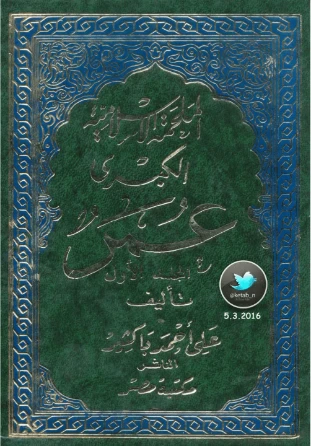 الملحمة الإسلامية
الكبرى
عمر
المجلد الأول
تأليف
@ketab_n
5.3.2016
علي أحمد باكثير
الناشر
مكتبة مصر